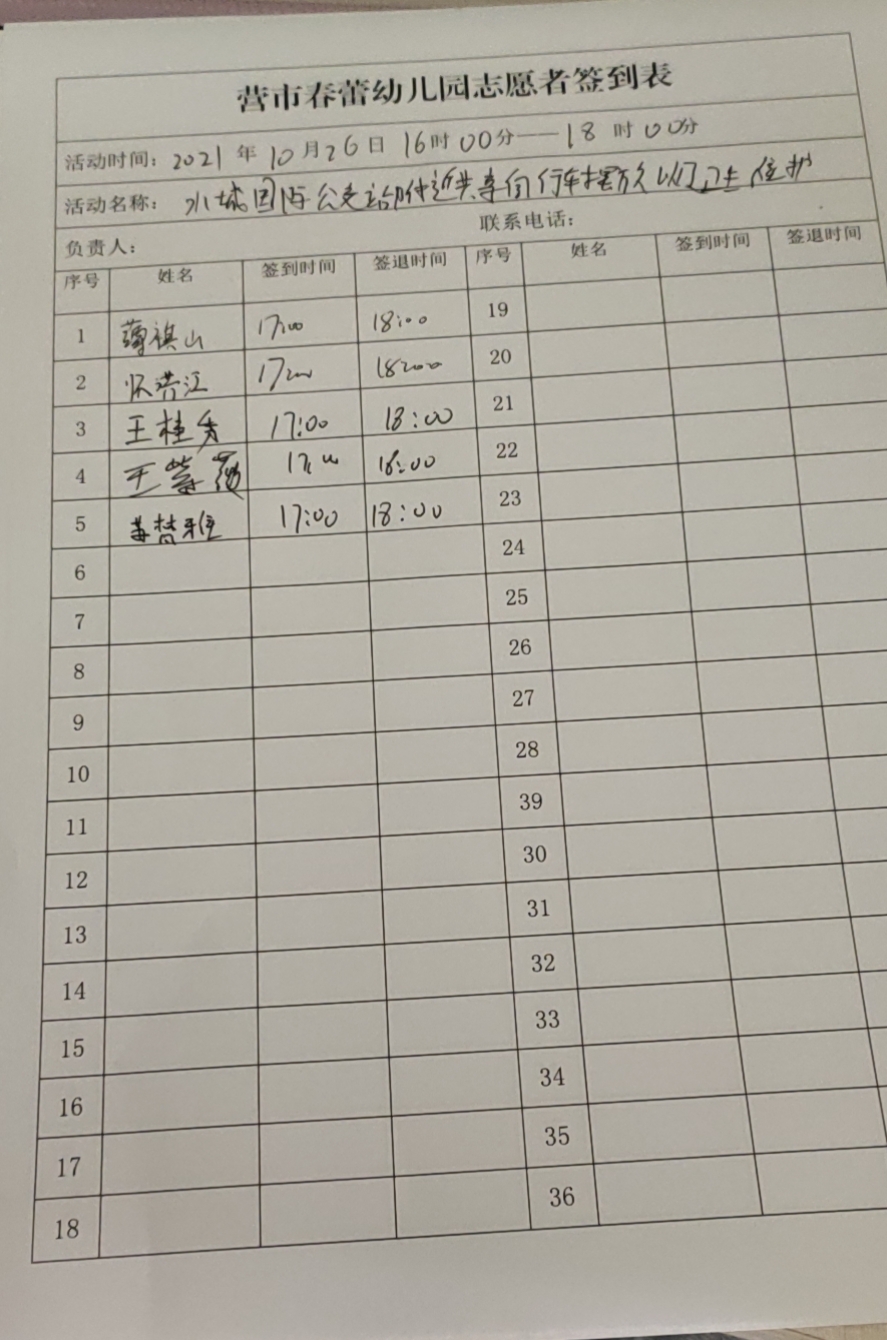 营市春蕾幼儿园志愿者签到表
活动时间：2021 年 10 月 26 日 16时 00分——18 时 00分
活动名称： 水城国际公交站附近共享自行车摆放 卫生维护
负责人： 联系电话：
序号 姓名 签到时间 签退时间 序号 姓名 签到时间 签退时间
1 薄祺山 17:00 18:00 19
2 怀洪江 17:00 18:00 20
3 王桂秀 17:00 18:00 21
4 王 17:00 18:00 22
5 梵雅 17:00 18:00 23
6 24
7 25
8 26
9 27
10 28
11 39
12 30
13 31
14 32
15 33
16 34
17 35
18 36